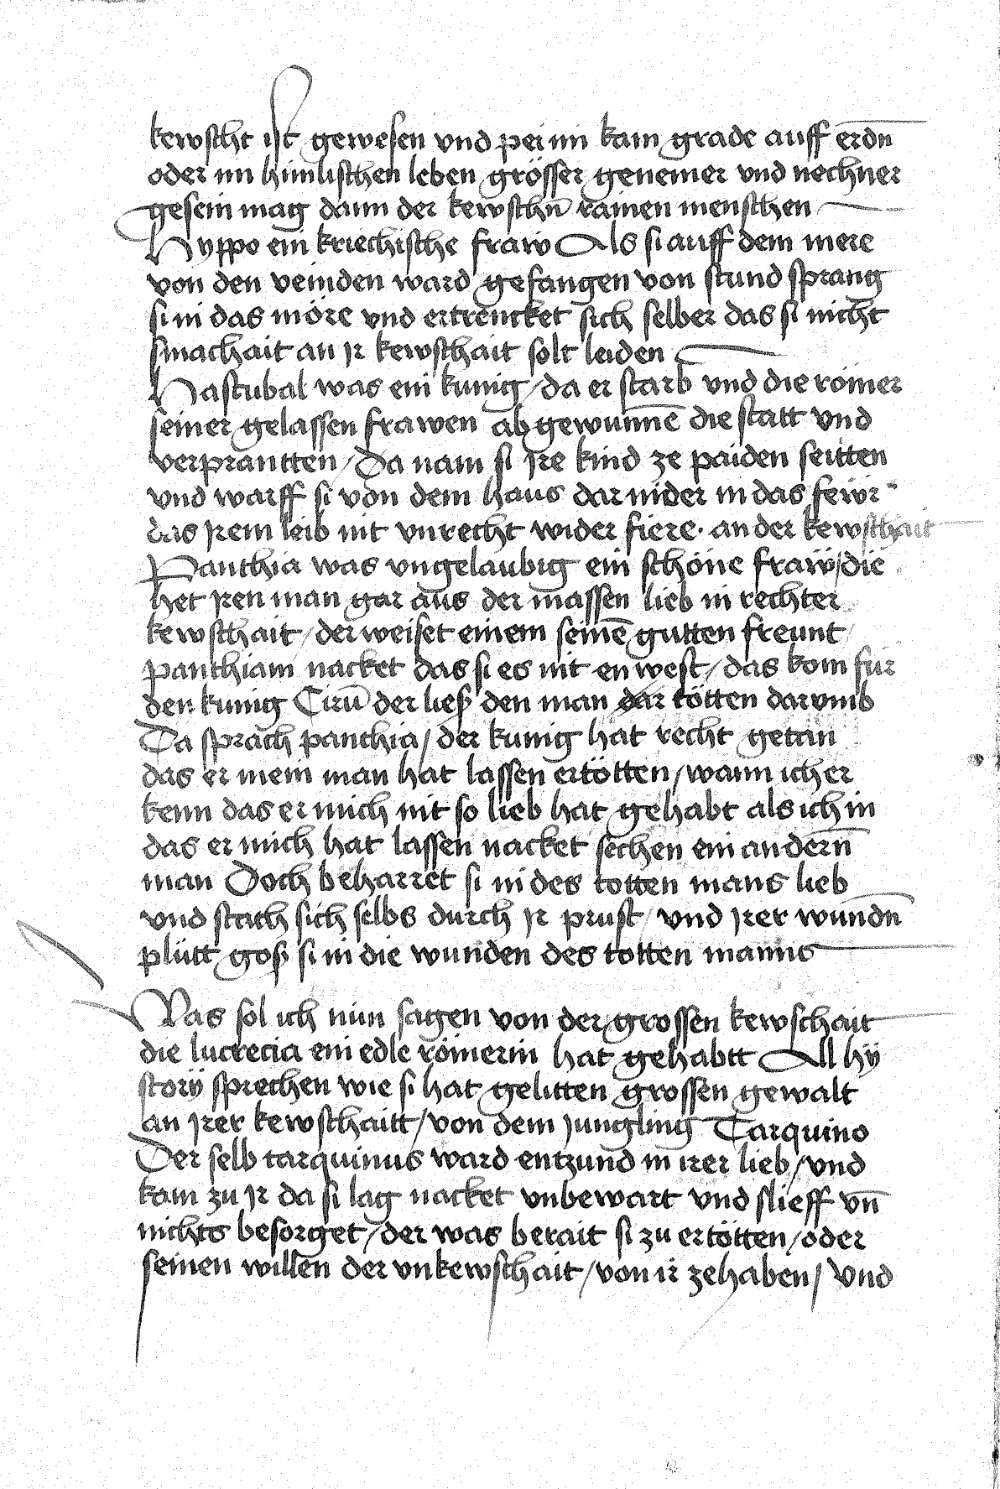 kewscht ist gewesen vnd pei im kam grade auff erdn̄
oder im himlischen leben grösser genemer vnd nechner
gesein mag dann der kewschn̄ rainen menschen
Hyppo ein kriechische fraw Als si auff dem mere
von den veinden ward gefangen von stund sprang
si in das möre vnd ertrencket sich selber das si nicht
smachait an ir kewschait solt leiden
Hastubal was ein kunig / da er starb vnd die römer
seiner gelassen frawen ab gewunnē die statt vnd
verprantten / Da nam si Ire kind ze paiden seitten
vnd warff si von dem haus dar nider in das fewr
das Irem leib nit vnrecht wider fiere · an der kewschait
Panthia was vngelaubig ein schöne fraw / die
het Iren man gar aus der massen lieb in rechter
kewschait / der weiset einem seinē gutten freunt /
panthiam nacket das si es nit en west / das kom für
den kunig Cirū der lieſz den man dar tötten darumb
Da sprach panthia / der kunig hat recht getan
das er mein man hat lassen ertötten / wann ich er
kenn das er mich nit so lieb hat gehabt als ich in
das er mich hat lassen nacket sechen ein andern̄
man Doch beharret si in des totten mans lieb
vnd stach sich selbs durch Ir prust / vnd Irer wundn̄
plütt goſz si in die wunden des totten manns
Was sol ich nun sagen von der grossen kewschait
die lucrecia ein edle römerin hat gehabtt All hÿ
storÿ sprechen wie si hat gelitten grossen gewalt
an Irer kewschaitt / von dem Jungling Tarquino
Der selb tarquinus ward entzund in irer lieb / vnd
kam zu Ir da si lag nacket vnbewart vnd slieff vn̄
nichts besorget / der was berait si zu ertötten / oder
seinen willen der vnkewschait / von ir zehaben / vnd